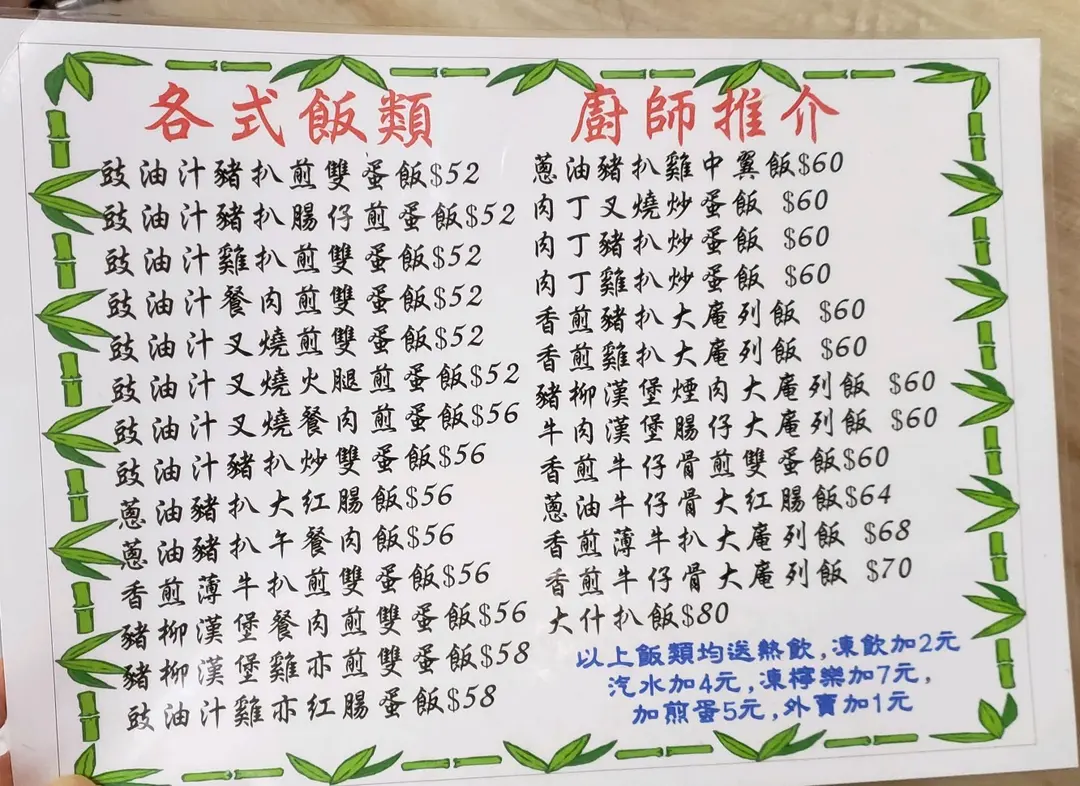 各式飯類
豉油汁豬扒煎雙蛋飯$52
豉油汁豬扒腸仔煎蛋飯$52
豉油汁雞扒煎雙蛋飯$52
豉油汁餐肉煎雙蛋飯$52
豉油汁叉燒煎雙蛋飯$52
豉油汁叉燒火腿煎蛋飯$52
豉油汁叉燒餐肉煎蛋飯$56
豉油汁豬扒炒雙蛋飯$56
蔥油豬扒大紅腸飯$56
蔥油豬扒午餐肉飯$56
香煎薄牛扒煎雙蛋飯$56
豬柳漢堡餐肉煎雙蛋飯$56
豬柳漢堡雞亦煎雙蛋飯$58
豉油汁雞亦紅腸蛋飯$58
廚師推介
蔥油豬扒雞中翼飯$60
肉丁叉燒炒蛋飯 $60
肉丁豬扒炒蛋飯 $60
肉丁雞扒炒蛋飯 $60
香煎豬扒大庵列飯 $60
香煎雞扒大庵列飯 $60
豬柳漢堡煙肉大庵列飯 $60
牛肉漢堡腸仔大庵列飯 $60
香煎牛仔骨煎雙蛋飯$60
蔥油牛仔骨大紅腸飯$64
香煎薄牛扒大庵列飯 $68
香煎牛仔骨大庵列飯 $70
大什扒飯$80
以上飯類均送熱飲,凍飲加2元
汽水加4元,凍檸樂加7元,
加煎蛋5元,外賣加1元